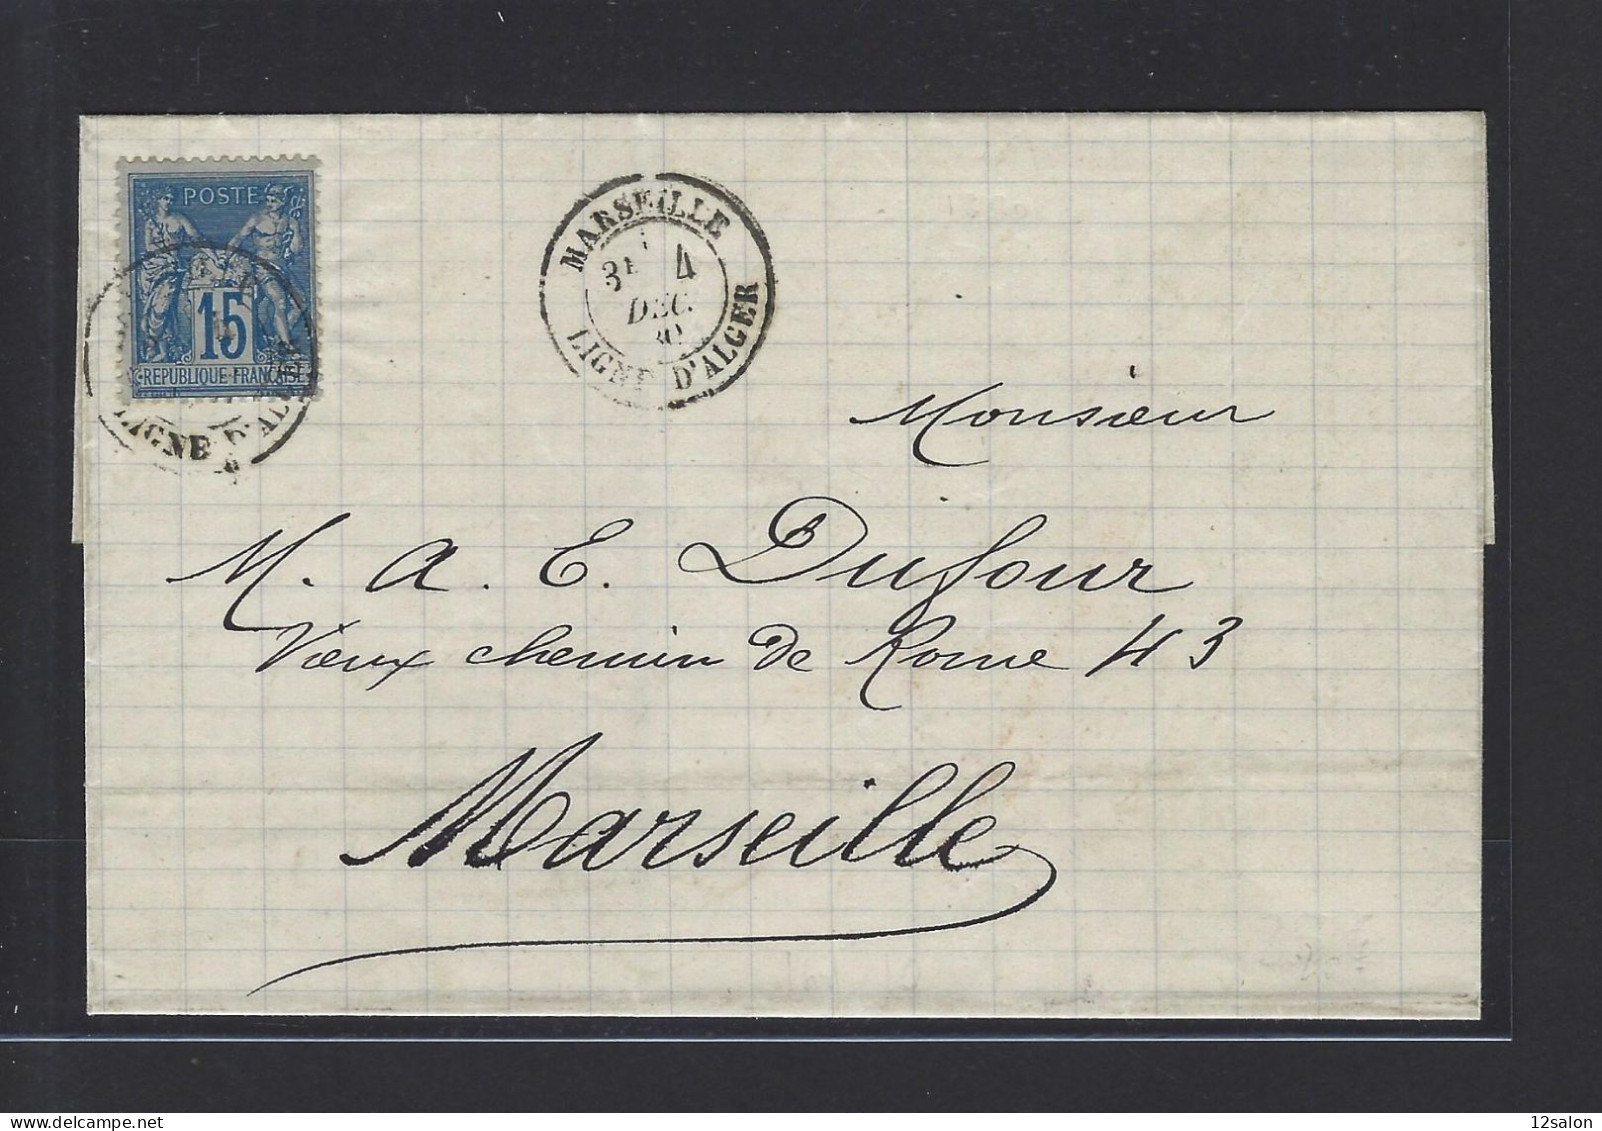 POSTE
15
REPUBLIQUE FRANÇAISE
LIGNE D'ALGER
MARSEILLE
3E 4
DEC.
80
LIGNE D'ALGER
Monsieur
M. A. E. Dufour
Vieux chemin de Rome 43
Marseille
12salon